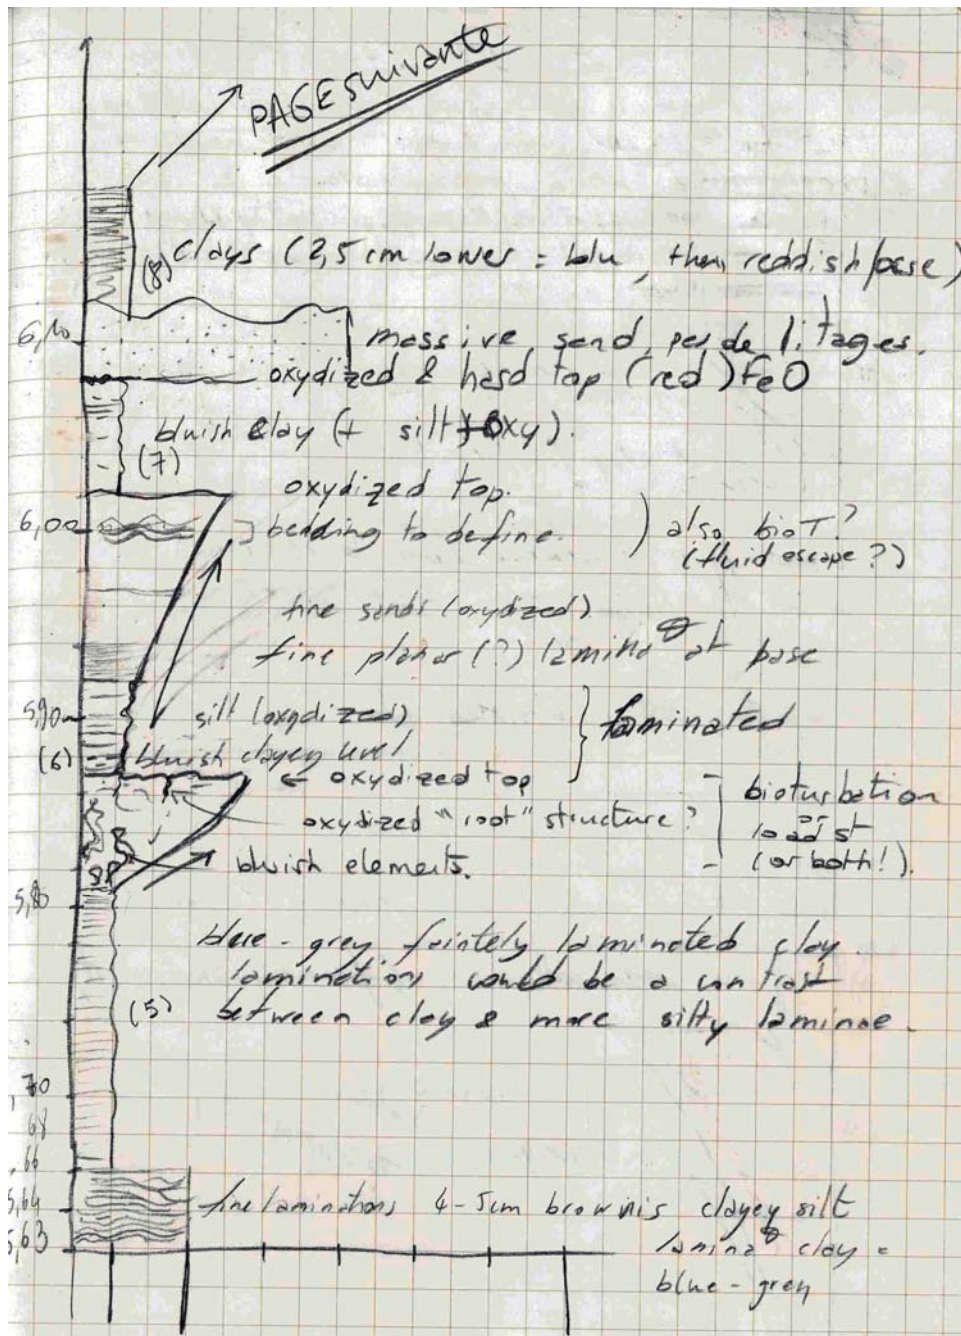 PAGE suivante
(8) clays (2,5 cm lower = blu, then reddish/ocse)
6,10
massive sand, peu de litages.
oxydized & hard top (red) FeO
bluish clay (+ silt + oxy).
(7)
oxydized top.
6,00
bedding to define.
also bioT?
(fluid escape?)
fine sands (oxydized).
fine planar (?) lamina at base
5,90
silt (oxydized)
laminated
(6) bluish clayey level
← oxydized top
oxydized "root" structure?
bioturbation
load st
(or both!).
bluish elements.
5,80
blue-grey faintely laminated clay.
lamination would be a contrast
(5) between clay & more silty laminae.
,70
68
,66
5,64
fine laminations 4-5cm brownis clayey silt
5,63
lamina clay =
blue-grey